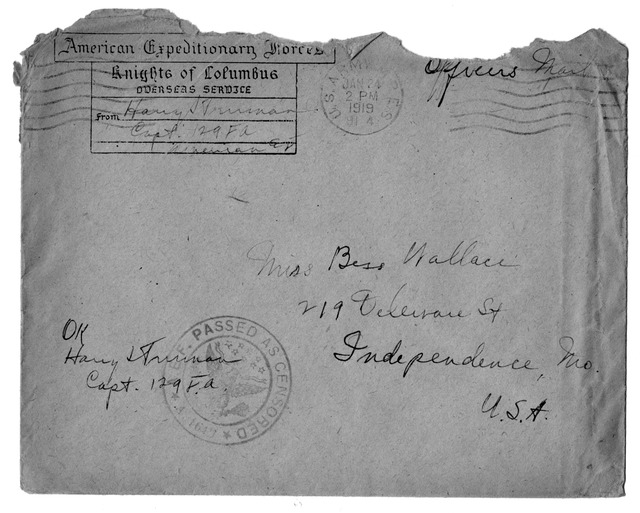 American Expeditionary Forces
Knights of Columbus
OVERSEAS SERVICE
From Harry S Truman
Capt. 129 F.A.
American E.F.
2 PM
1919
Officers Mail
Miss Bess Wallace
219 Deleware St
Independence, Mo.
U.S.A.
OK
Harry S Truman
Capt. 129 F.A.
A.E.F. PASSED AS CENSORED